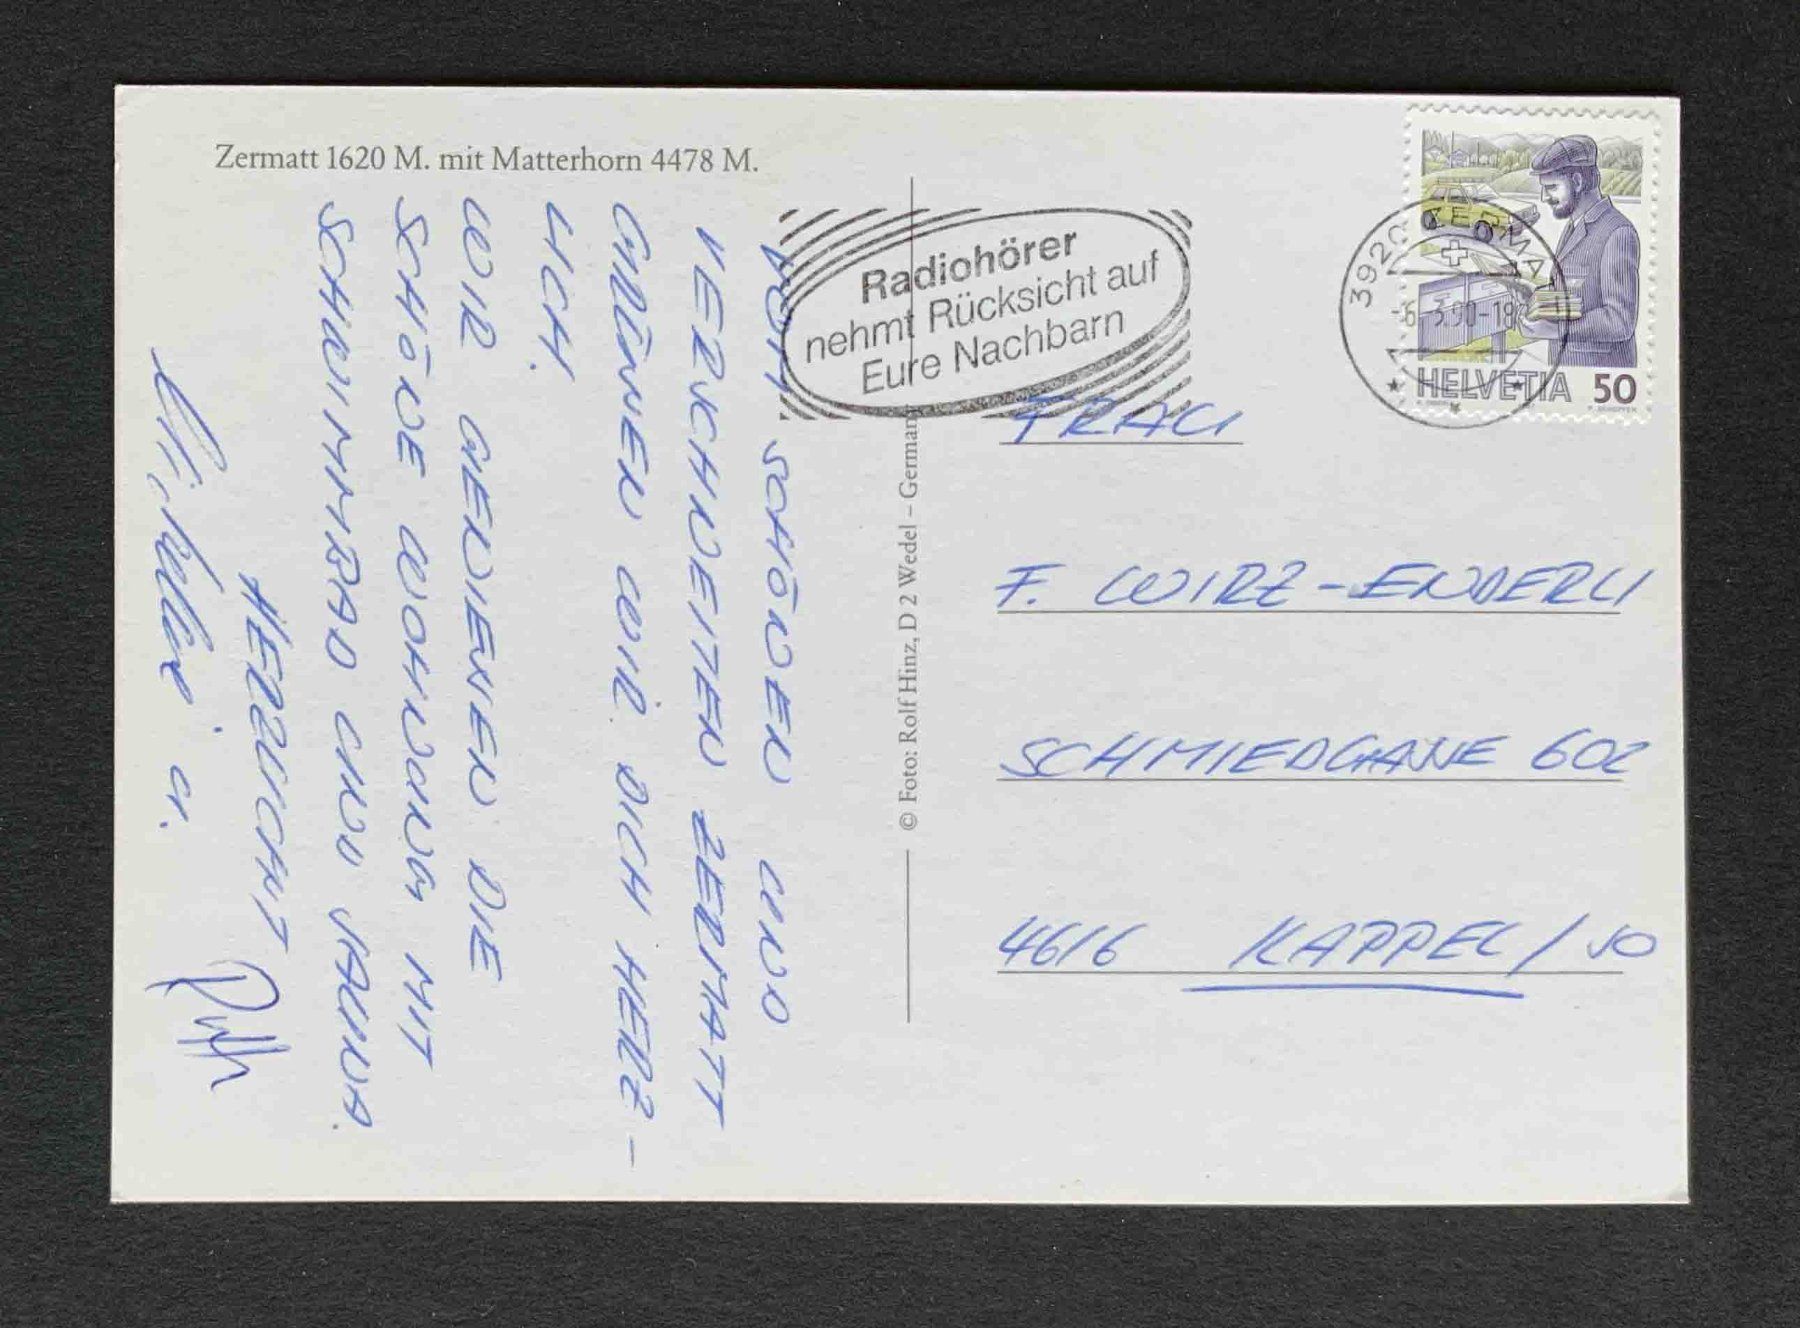 Zermatt 1620 M. mit Matterhorn 4478 M.
VOM SCHÖNEN UND
VERSCHNEITEN ZERMATT
GRÜSSEN WIR DICH HERZ-
LICH.
WIR GENIESSEN DIE
SCHÖNE WOHNUNG MIT
SCHWIMMBAD UND SAUNA.
HERZLICHST
u.
© Foto: Rolf Hinz, D 2 Wedel – Germany
Radiohörer
nehmt Rücksicht auf
Eure Nachbarn
3920 ZERMATT
-6.-3.90-18
HELVETIA 50
FRAU
F. WIRZ-ENDERLI
SCHMIEDGASSE 602
4616 KAPPEL/SO